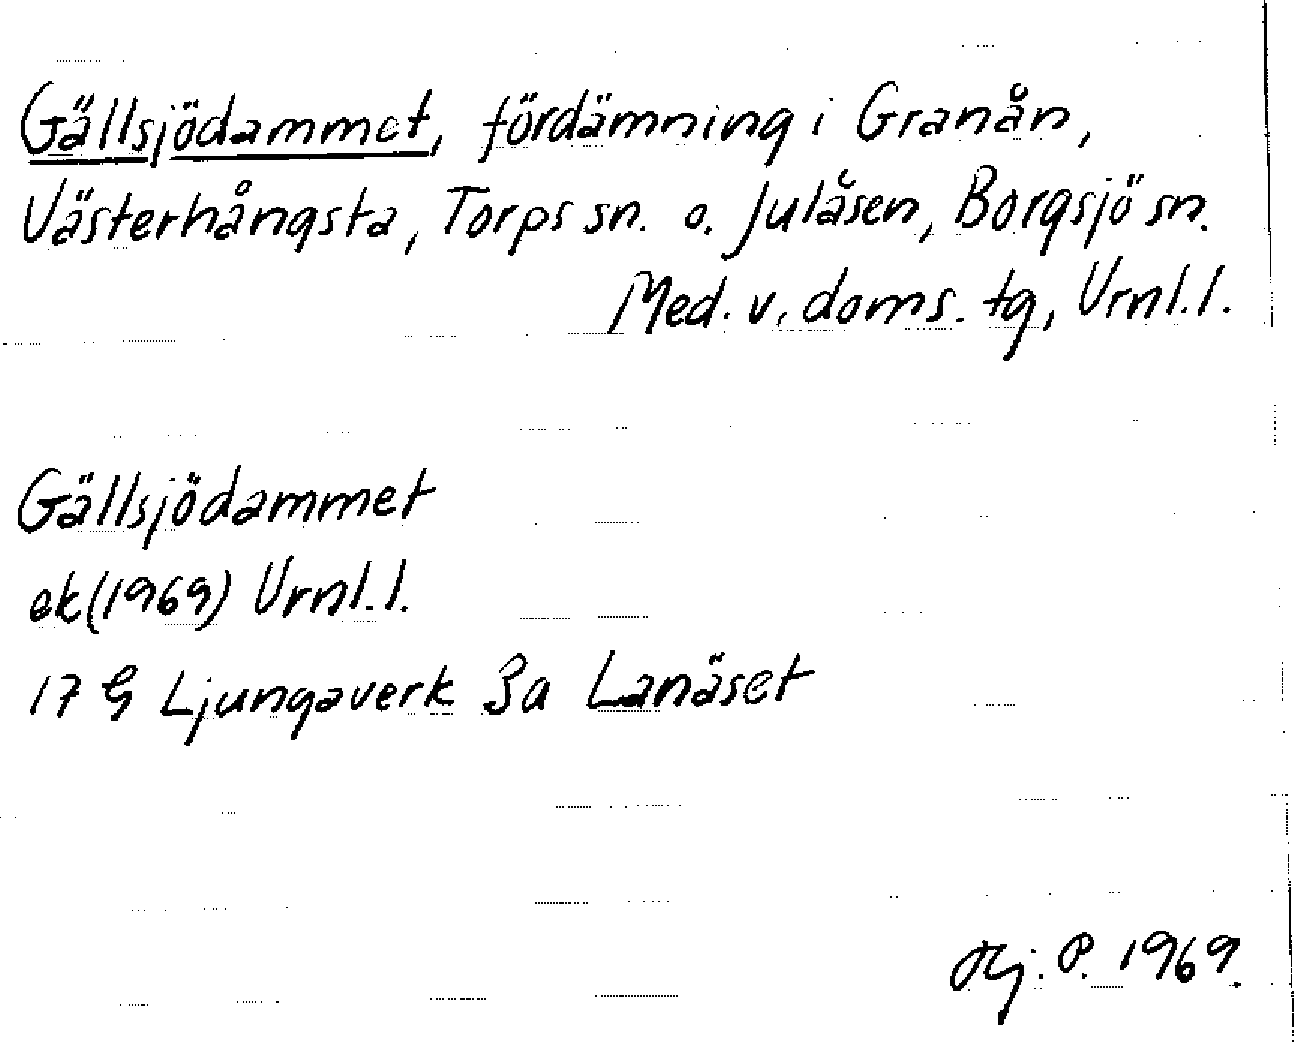 Gällsjödammet, fördämning i Granån,
Västerhångsta, Torps sn. o. Julåsen, Borgsjö sn.
Med. v. doms. tg, Urnl. l.
Gällsjödammet
ek (1969) Urnl. l.
17 G Ljungaverk 3a Lanäset
P. 1969.